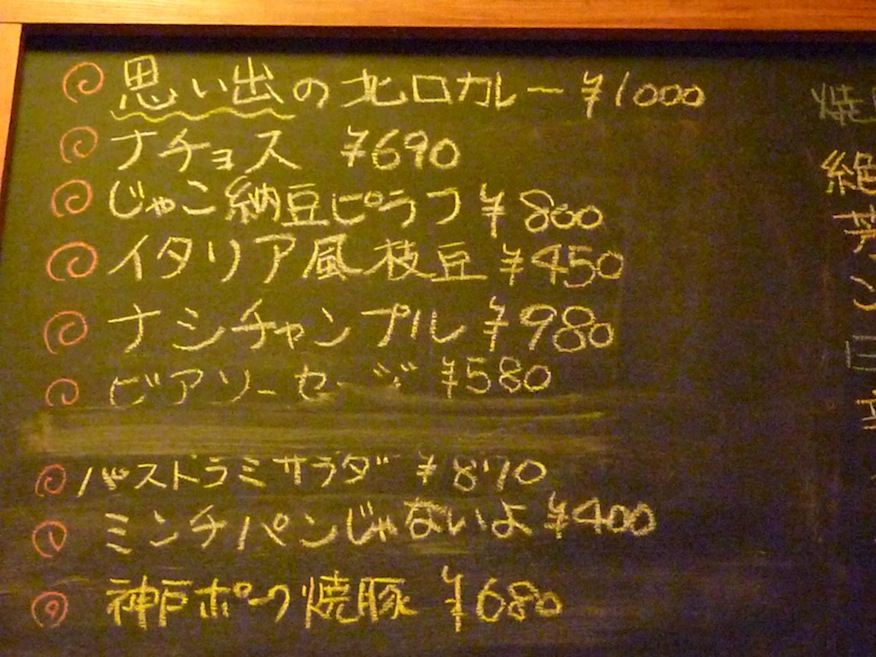 思い出の北口カレー ¥1000
ナチョス ¥690
じゃこ納豆ピラフ ¥800
イタリア風枝豆 ¥450
ナシチャンプル ¥980
ビアソーセージ ¥580
パストラミサラダ ¥870
ミンチパンじゃないよ ¥400
神戸ポーク焼豚 ¥680
焼
絶